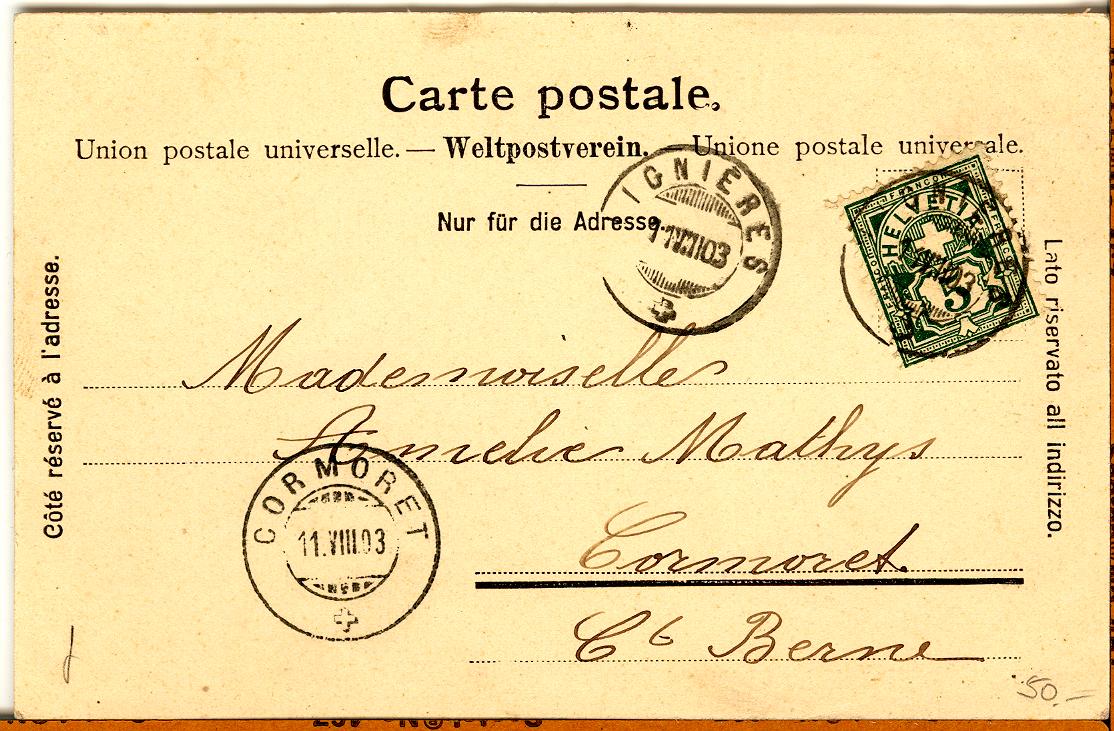 Carte postale.
Union postale universelle. — Weltpostverein. — Unione postale universale.
Nur für die Adresse.
Côté réservé à l'adresse.
Lato riservato all indirizzo.
IGNIÈRES
VIII 03
FRANCO
HELVETIA
5
Mademoiselle
Amelie Mathys
Cormoret.
Ct Berne
CORMORET
11.VIII.03
50.—